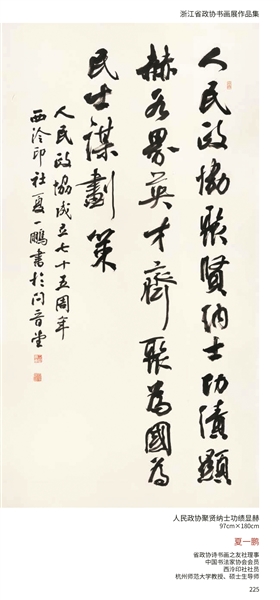 浙江省政协书画展作品集
人民政協聚賢納士功績顯
赫各界英才齊聚為國為
民士謀劃策
人民政協成立七十五周年
西泠印社夏一鵬書於問音堂
人民政协聚贤纳士功绩显赫
97cm×180cm
夏一鹏
省政协诗书画之友社理事
中国书法家协会会员
西泠印社社员
杭州师范大学教授、硕士生导师
225